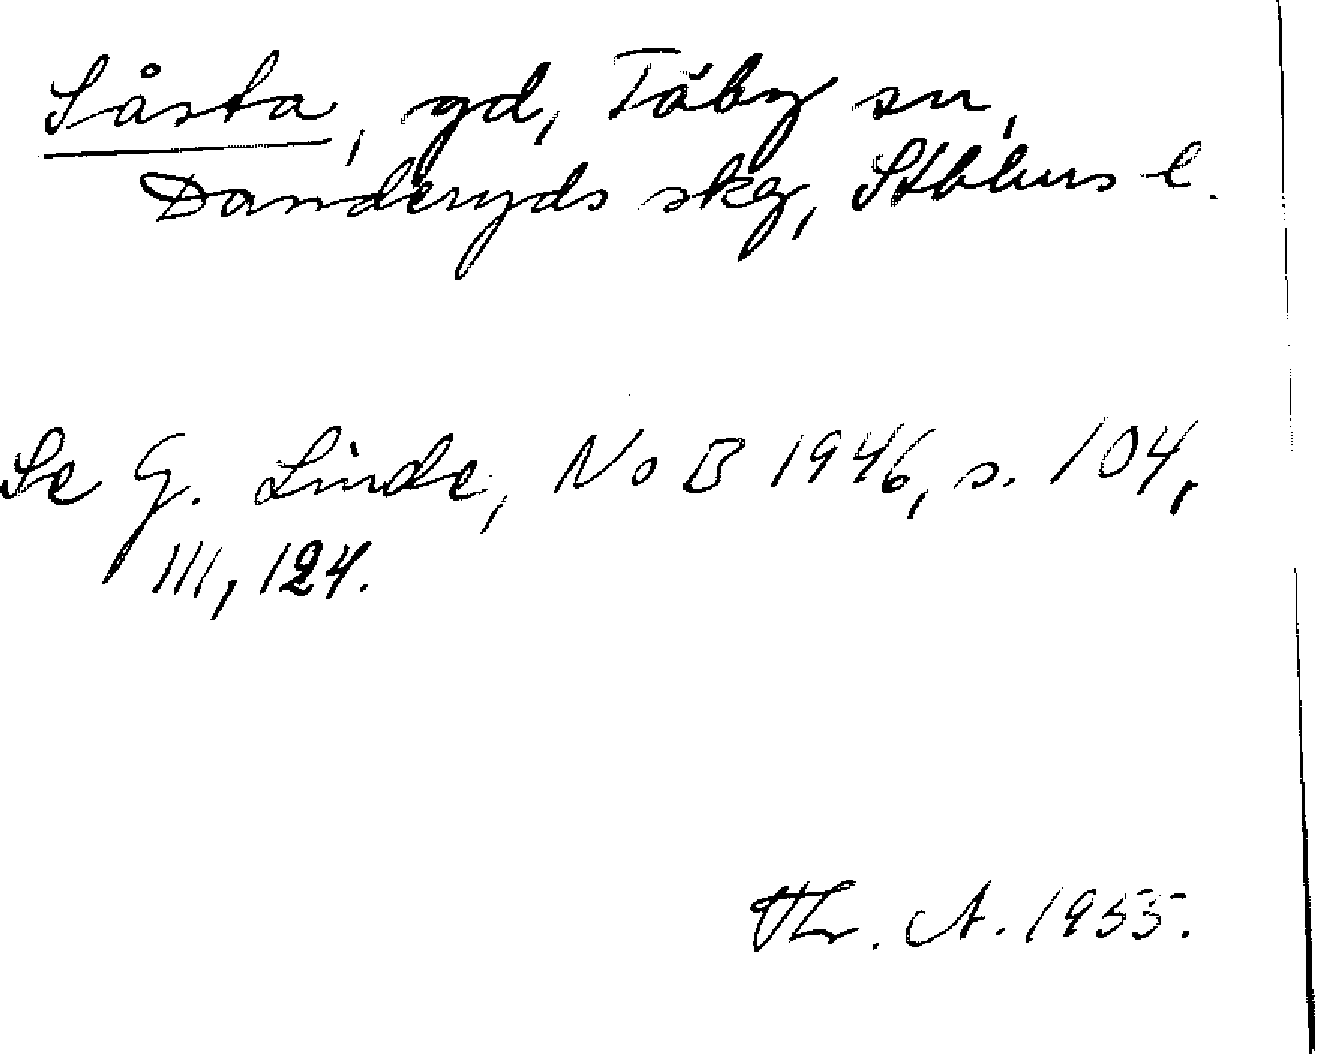 Såsta, gd, Täby sn,
Danderyds skg, Stblms l.
Se G. Linde, NoB 1946, s. 104,
111, 124.
A. 1955.